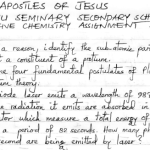 APOSTLES OF JESUS
SEMINARY SECONDARY SCH
CHEMISTRY ASSIGNMENT
a reason, identify the sub-atomic par
t a constituent of a
four fundamental postulates of Pl
theory
laser emits a wavelength of 987
radiation it emits are absorbed in
tor which measure a total energy of
a period of 32 seconds. How many p
second are being emitted by laser